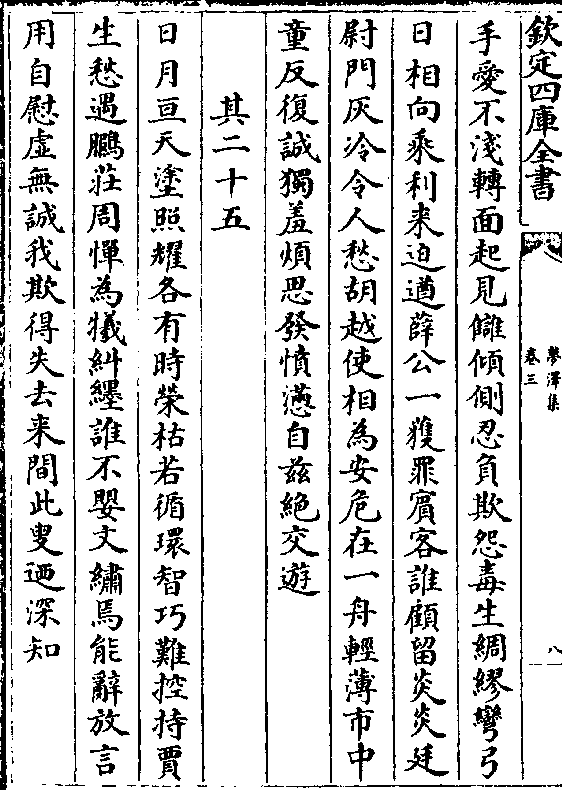 欽定四庫全書
夢澤集
卷三
八
手愛不淺轉面起見讎傾側忍負欺怨毒生綢繆彎弓
日相向乘利来迫遒薛公一獲罪賓客誰顧留炎炎廷
尉門灰冷令人愁胡越使相為安危在一舟輕薄市中
童反復誠獨羞煩思發憤懣自兹絶交遊
其二十五
日月亘天塗照耀各有時榮枯若循環智巧難控持賈
生愁遇鵩莊周憚為犧糾纆誰不嬰文繡焉能辭放言
用自慰虚無誠我欺得失去来間此叟迺深知